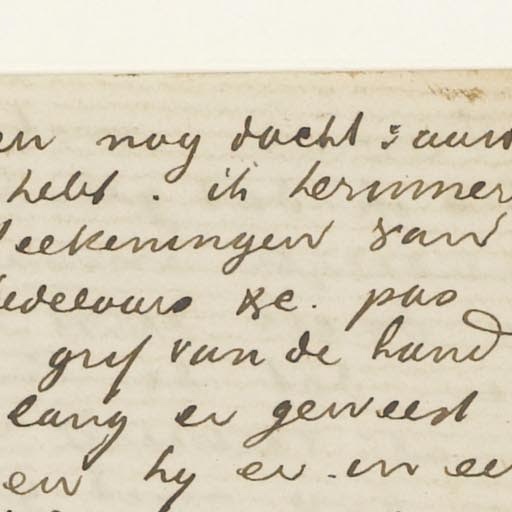 en nog docht s'aan
hebt. ik herinner
teekeningen van
bedelaars &c. pas
grif van de hand
lang er geweest
en hy er in ee